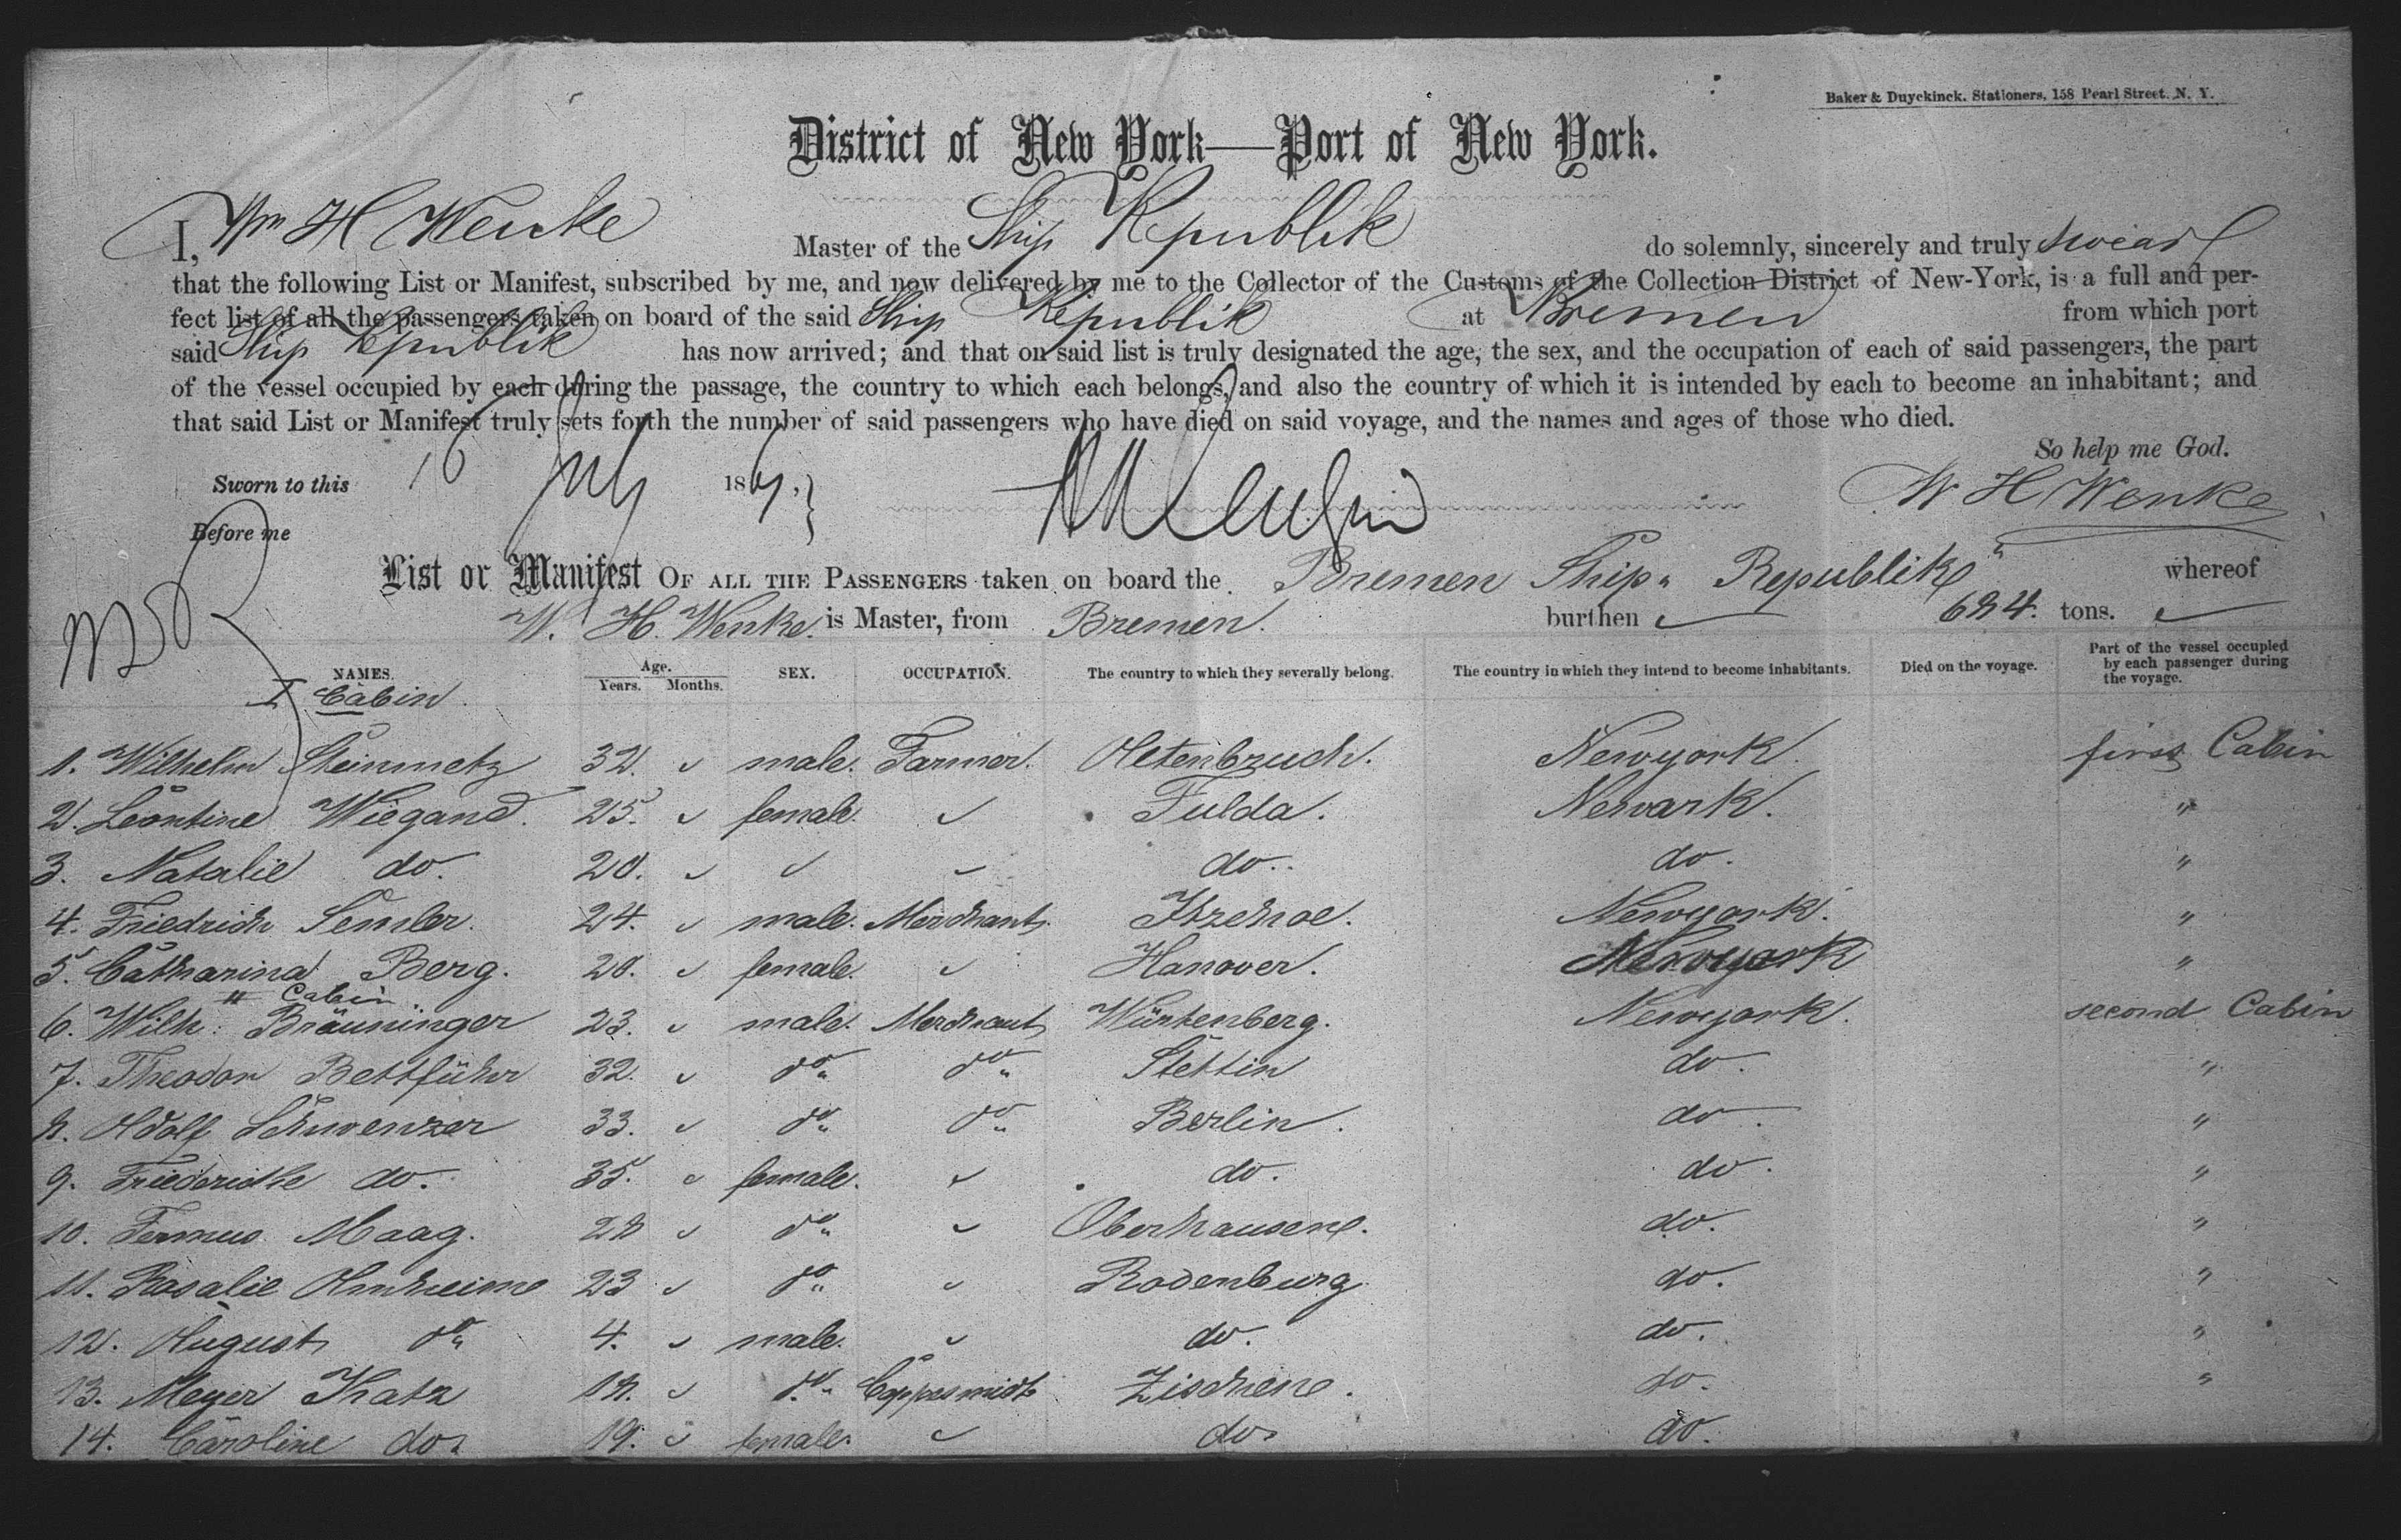 Baker & Duyckinck. Stationers, 158 Pearl Street. N. Y.
District of New York—Port of New York.
I, Wm H Wenke Master of the Ship Republik do solemnly, sincerely and truly swear
that the following List or Manifest, subscribed by me, and now delivered by me to the Collector of the Customs of the Collection District of New-York, is a full and per-
fect list of all the passengers taken on board of the said Ship Republik at Bremen from which port
said Ship Republik has now arrived; and that on said list is truly designated the age, the sex, and the occupation of each of said passengers, the part
of the vessel occupied by each during the passage, the country to which each belongs, and also the country of which it is intended by each to become an inhabitant; and
that said List or Manifest truly sets forth the number of said passengers who have died on said voyage, and the names and ages of those who died.
So help me God.
Sworn to this 16 July 1867, W H Wenke
Before me
List or Manifest OF ALL THE PASSENGERS taken on board the Bremen Ship „ Republik" whereof
W. H. Wenke. is Master, from Bremen. burthen 684. tons.
NAMES. Age. Years. Months. SEX. OCCUPATION. The country to which they severally belong. The country in which they intend to become inhabitants. Died on the voyage. Part of the vessel occupied by each passenger during the voyage.
I Cabin
1. Wilhelm Steinmetz 32. male. Farmer. Oetenbruch. Newyork. first Cabin
2. Leontine Wiegand. 25. female. Fulda. Newark. "
3. Natalie do. 20. do. do. "
4. Friedrich Semler. 24. male. Merchant. Itzehoe. Newyork. "
5. Catharina Berg. 20. female. Hanover. Newyork "
II Cabin.
6. Wilh: Bräuninger 23. male. Merchant Würtenberg. Newyork. second Cabin
7. Theodor Bettführ 32. do do Stettin do. "
8. Adolf Schwenzer 33. do do Berlin. do. "
9. Friedericke do. 35. female. do. do. "
10. Maag. 28 do Oberhausen. do. "
11. Rosalie 23 do Rodenburg do. "
12. August do 4. male. do. do. "
13. Meyer Katz 18. do Coppersmidt do. "
14. Caroline do. 19. female. do. do.